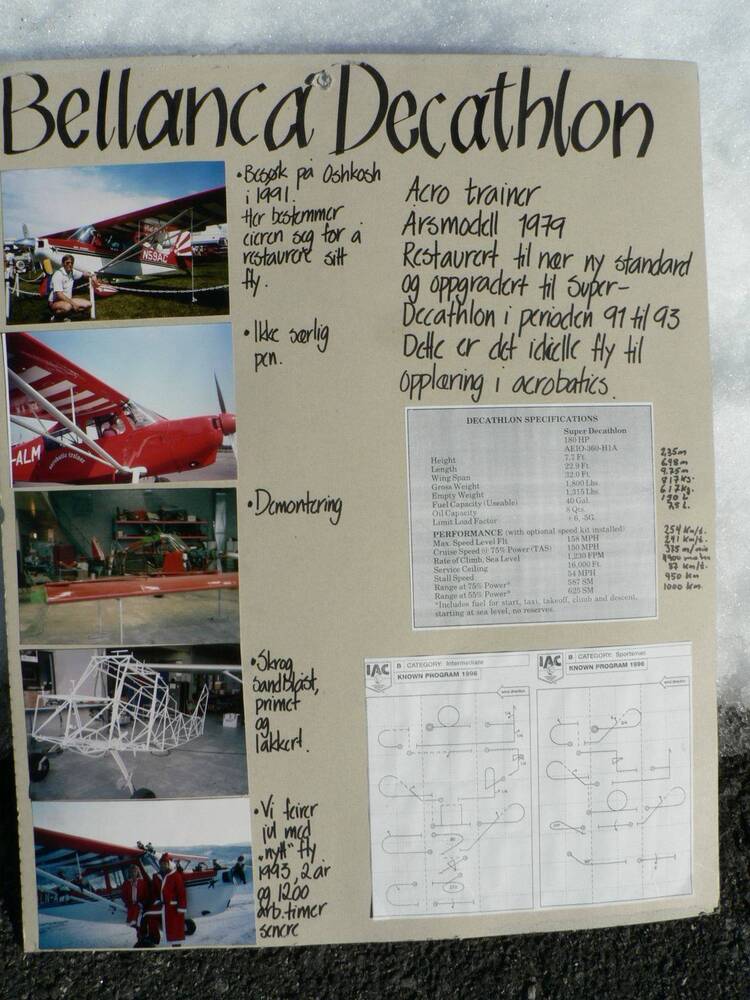 Bellanca Decathlon
• Besøk på Oshkosh
i 1991.
Her bestemmer
eieren seg for å
restaurere sitt
fly.
• Ikke særlig
pen.
• Demontering
• Skrog
sandblåst,
primet
og
lakkert.
• Vi feirer
jul med
"nytt" fly
1993, 2 år
og 1200
arb.timer
senere
Acro trainer
Årsmodell 1979
Restaurert til nær ny standard
og oppgradert til Super-
Decathlon i perioden 91 til 93
Dette er det idielle fly til
opplæring i acrobatics.
N59AC
-ALM
aerobatic trainer
DECATHLON SPECIFICATIONS
Super Decathlon
180 HP
AEIO-360-H1A
Height 7.7 Ft.
Length 22.9 Ft.
Wing Span 32.0 Ft.
Gross Weight 1,800 Lbs.
Empty Weight 1,315 Lbs.
Fuel Capacity (Useable) 40 Gal.
Oil Capacity 8 Qts.
Limit Load Factor +6, -5G
PERFORMANCE (with optional speed kit installed)
Max. Speed Level Flt 158 MPH
Cruise Speed @ 75% Power (TAS) 150 MPH
Rate of Climb, Sea Level 1,230 FPM
Service Ceiling 16,000 Ft.
Stall Speed 54 MPH
Range at 75% Power* 587 SM
Range at 55% Power* 625 SM
*Includes fuel for start, taxi, takeoff, climb and descent,
starting at sea level, no reserves.
2.35m
6.98m
9.75m
817kg.
617kg.
120 L
7,5 L.
254 km/t.
241 km/t.
375 m/min
87 km/t.
950 km
1000 km.
IAC
B CATEGORY: Intermediate
KNOWN PROGRAM 1996
wind direction
IAC
B CATEGORY: Sportsman
KNOWN PROGRAM 1996
wind direction